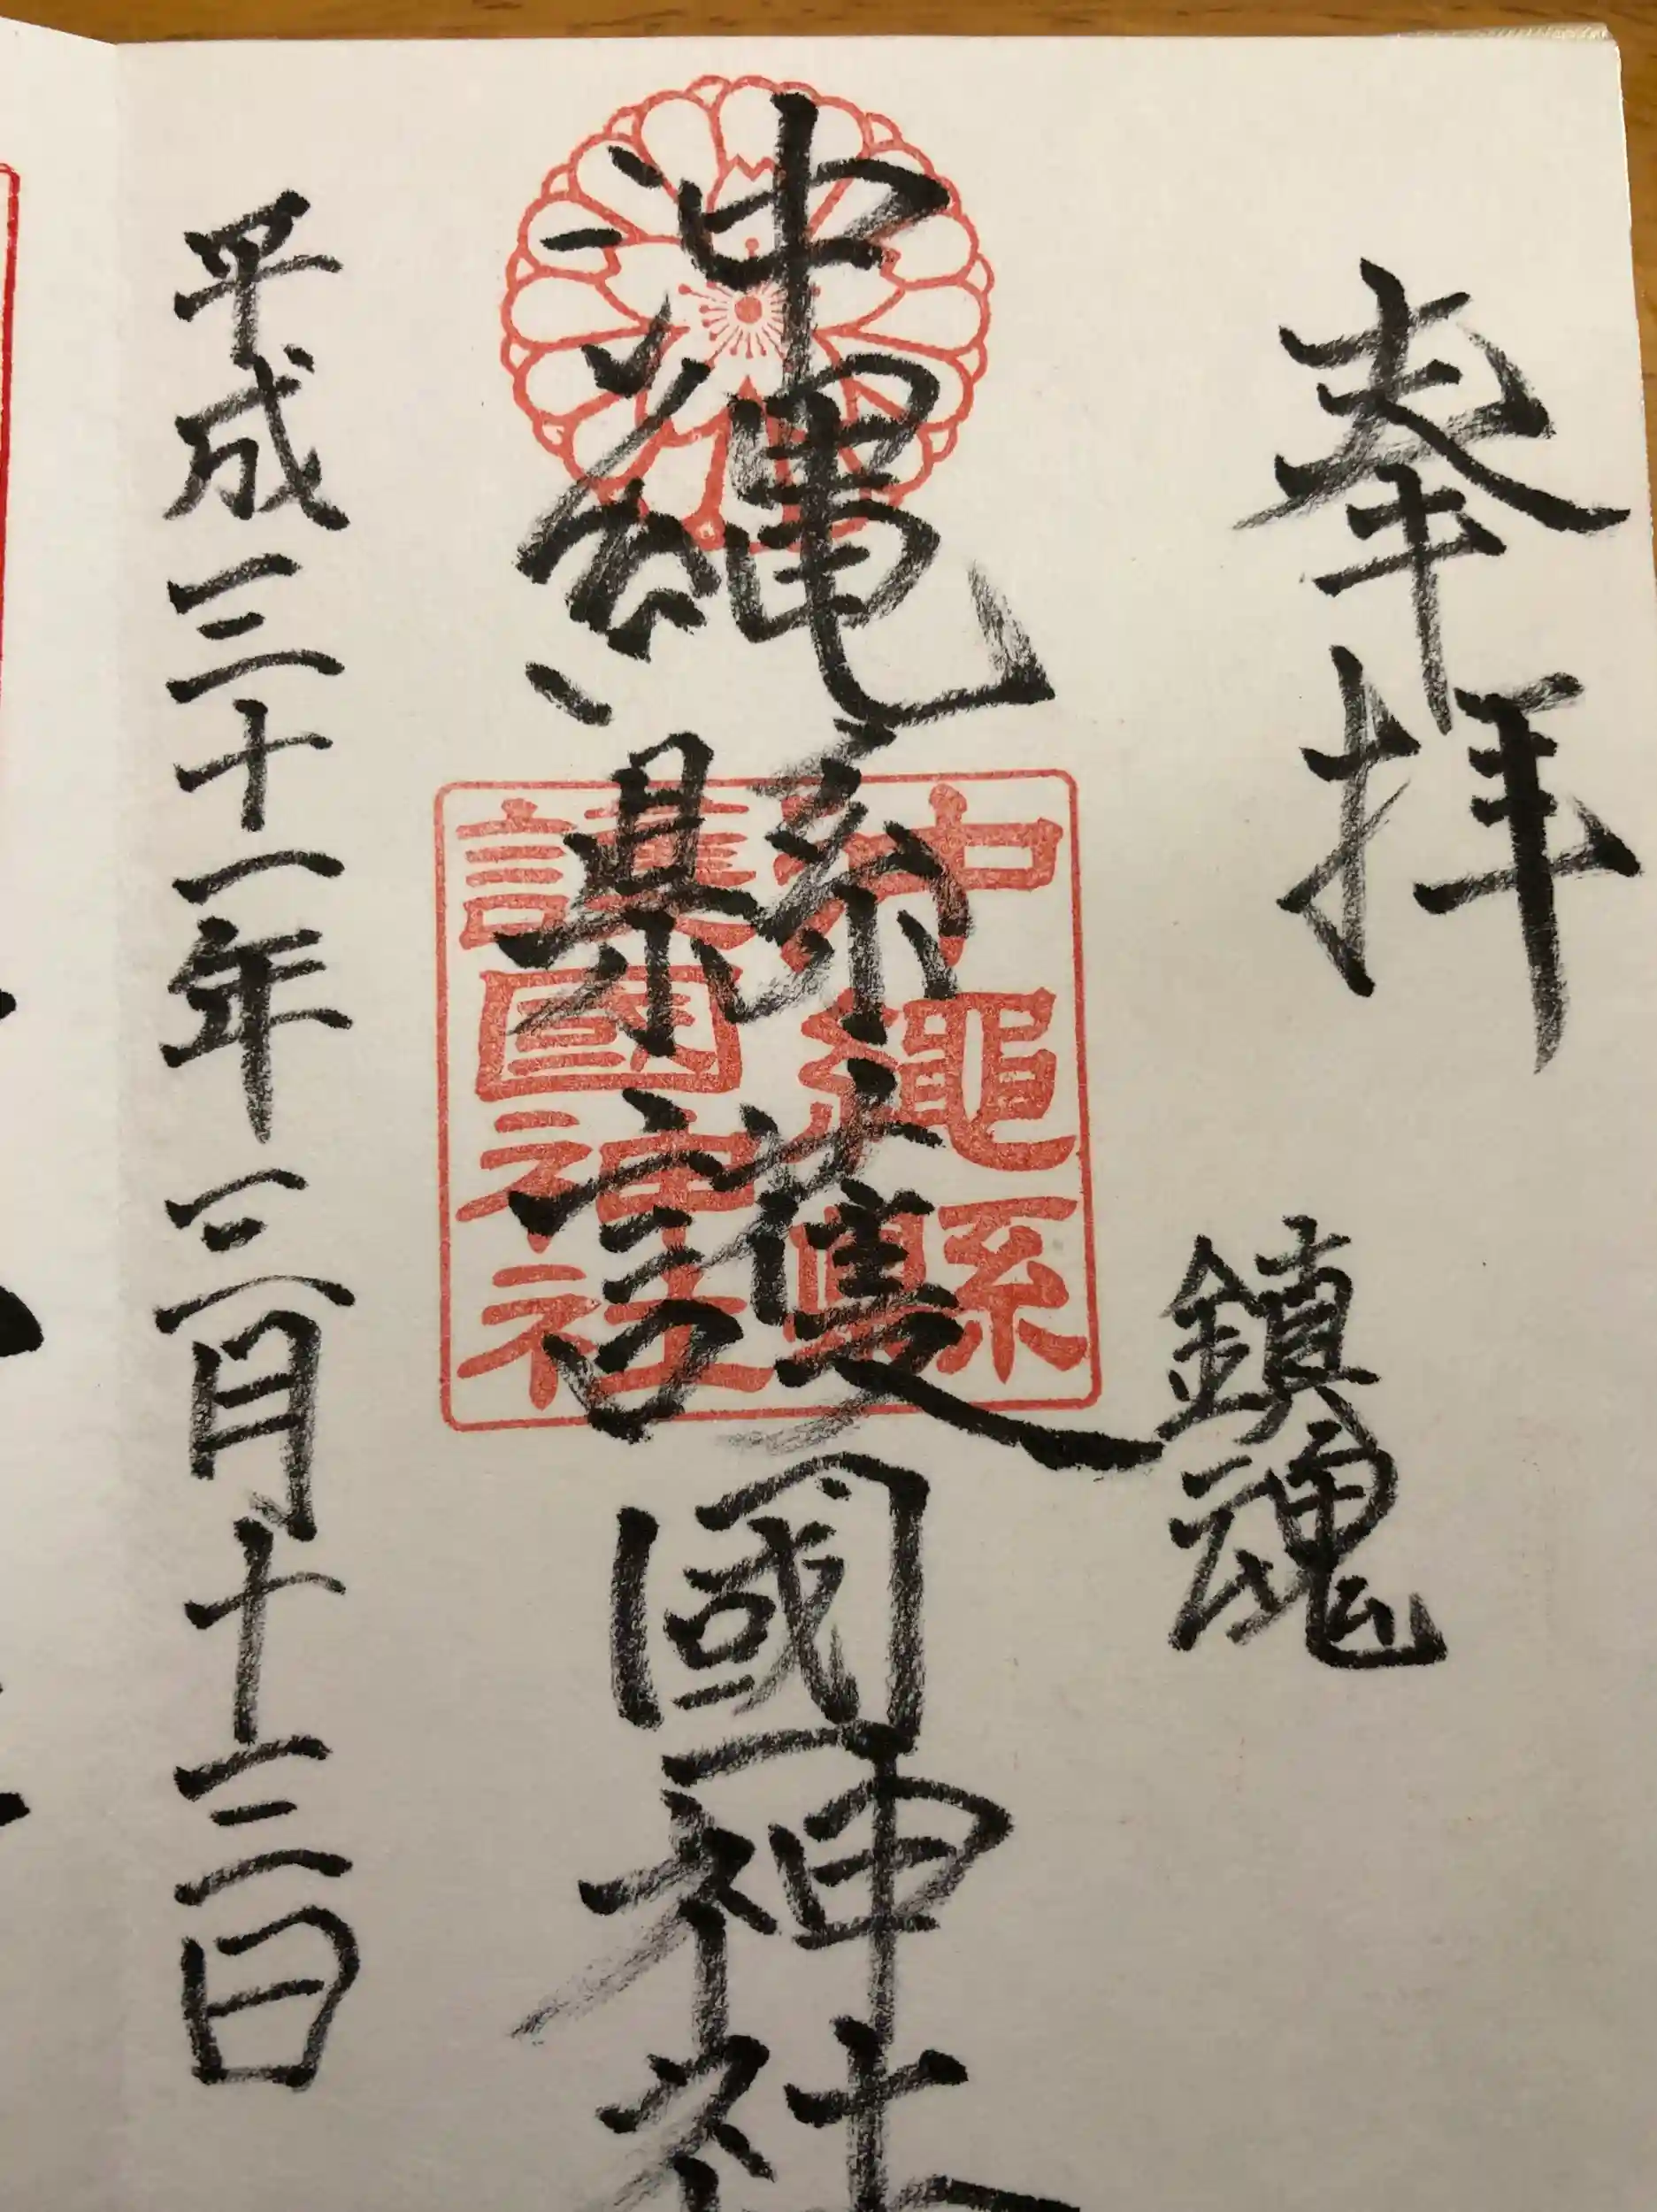 奉拝
鎮魂
沖縄縣護國神社
沖繩縣
護國神社
平成三十一年三月十三日